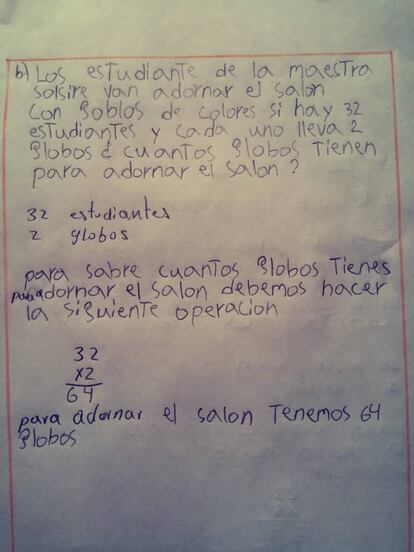 b) Los estudiante de la maestra
solsire van adornar el salon
con goblos de colores si hay 32
estudiantes y cada uno lleva 2
globos ¿ cuantos globos tienen
para adornar el salon ?
32 estudiantes
2 globos
para sabre cuantos globos tienes
para adornar el salon debemos hacer
la siguiente operacion
32
x2
64
para adornar el salon tenemos 64
globos